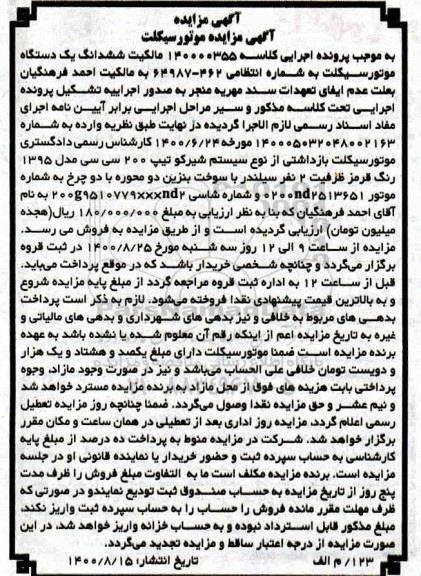 آگهی مزایده
آگهی مزایده موتورسیکلت
به موجب پرونده اجرایی کلاسه ۱۴۰۰۰۰۳۵۵ مالکیت ششدانگ یک دستگاه
موتورسیکلت به شماره انتظامی ۴۶۲-۶۴۹۸۷ به مالکیت احمد فرهنگیان
بعلت عدم ایفای تعهدات سند مهریه منجر به صدور اجراییه تشکیل پرونده
اجرایی تحت کلاسه مذکور و سیر مراحل اجرایی برابر آیین نامه اجرای
مفاد اسناد رسمی لازم الاجرا گردیده در نهایت طبق نظریه وارده به شماره
۱۴۰۰۰۵۰۳۲۰۴۸۰۰۲۱۶۳ مورخه ۱۴۰۰/۶/۲۴ کارشناس رسمی دادگستری
موتورسیکلت بازداشتی از نوع سیستم شیرکو تیپ ۲۰۰ سی سی مدل ۱۳۹۵
رنگ قرمز ظرفیت ۲ نفر سیلندر با سوخت بنزین دو محوره با دو چرخ به شماره
موتور ۹۰۲۰۰nd۲۵۱۳۶۵۱ و شماره شاسی ۲۰۰g۹۵۱۰۷۷۹xxxnd۲ به نام
آقای احمد فرهنگیان که بنا به نظر ارزیابی به مبلغ ۱۸۰/۰۰۰/۰۰۰ ریال(هجده
میلیون تومان) ارزیابی گردیده است و از طریق مزایده به فروش می رسد.
مزایده از ساعت ۹ الی ۱۲ روز سه شنبه مورخ ۱۴۰۰/۸/۲۵ در ثبت قروه
برگزار می‌گردد و چنانچه شخصی خریدار باشد که در موقع پرداخت می‌باید.
قبل از ساعت ۱۲ به اداره ثبت قروه مراجعه گردد از مبلغ پایه مزایده شروع
و به بالاترین قیمت پیشنهادی نقدا فروخته می‌شود. لازم به ذکر است پرداخت
بدهی های مربوط به خلافی و نیز بدهی های شهرداری و بدهی های مالیاتی و
غیره به تاریخ مزایده اعم از اینکه رقم آن معلوم شده یا نشده باشد به عهده
برنده مزایده است ضمنا موتورسیکلت دارای مبلغ یکصد و هشتاد و یک هزار
و دویست تومان خلافی علی الحساب می‌باشد و نیز در صورت وجود مازاد، وجوه
پرداختی بابت هزینه های فوق از محل مازاد به برنده مزایده مسترد خواهد شد
و نیم عشر و حق مزایده نقدا وصول می‌گردد. ضمنا چنانچه روز مزایده تعطیل
رسمی اعلام گردد، مزایده روز اداری بعد از تعطیلی در همان ساعت و مکان مقرر
برگزار خواهد شد. شرکت در مزایده منوط به پرداخت ده درصد از مبلغ پایه
کارشناسی به حساب سپرده ثبت و حضور خریدار یا نماینده قانونی او در جلسه
مزایده است. برنده مزایده مکلف است ما به التفاوت مبلغ فروش را ظرف مدت
پنج روز از تاریخ مزایده به حساب صندوق ثبت تودیع نمایندو در صورتی که
ظرف مهلت مقرر مانده فروش را حساب را به حساب سپرده ثبت واریز نکند،
مبلغ مذکور قابل استرداد نبوده و به حساب خزانه واریز خواهد شد، در این
صورت مزایده از درجه اعتبار ساقط و مزایده تجدید می‌گردد.
۱۲۳/ م الف تاریخ انتشار: ۱۴۰۰/۸/۱۵